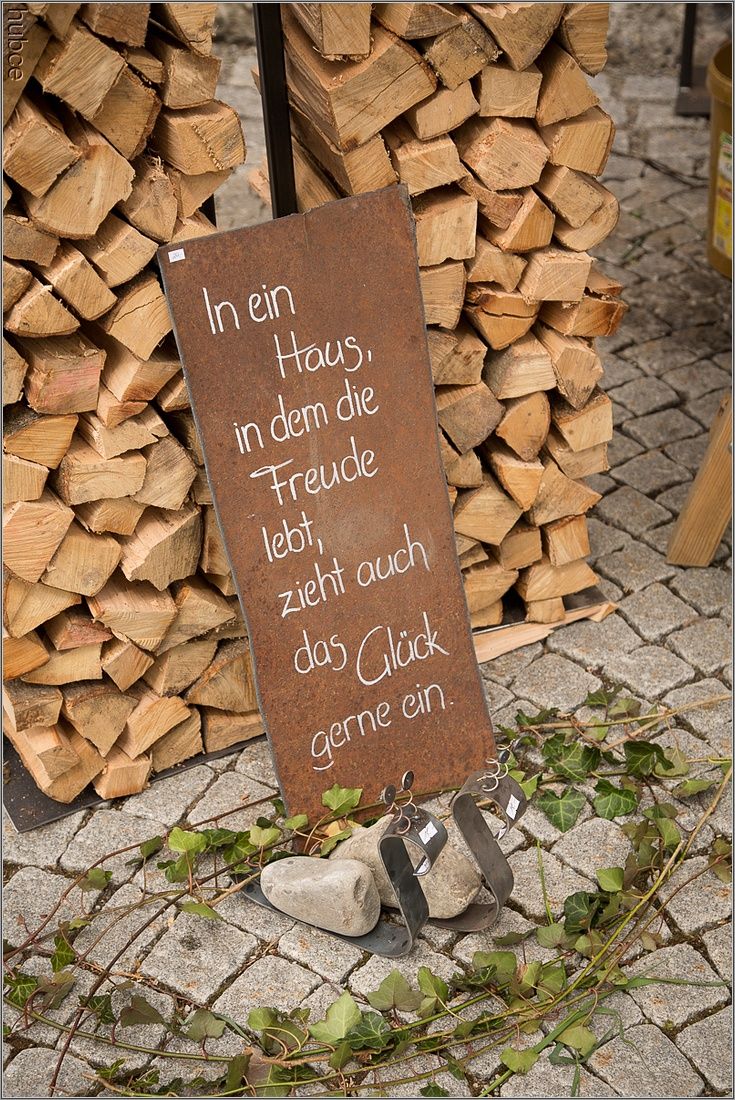 hubce
In ein
Haus,
in dem die
Freude
lebt,
zieht auch
das Glück
gerne ein.